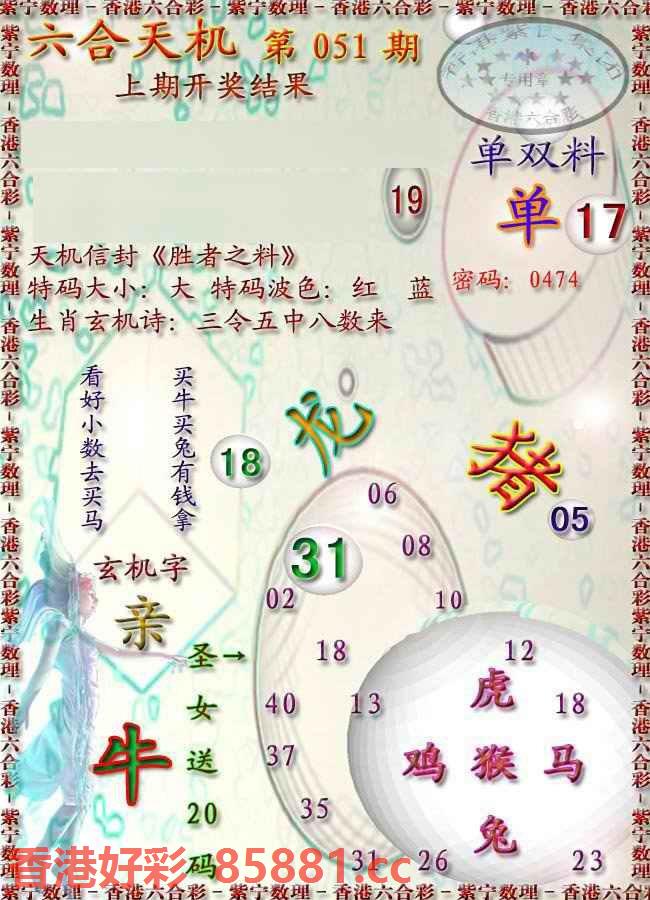 紫宁数理－香港六合彩－紫宁数理－香港六合彩－紫宁数理－香港六合彩
六合天机 第 051 期
上期开奖结果
专用章
香港六合彩
单双料
19
单 17
天机信封《胜者之料》
特码大小: 大 特码波色: 红 蓝
密码: 0474
生肖玄机诗: 三令五中八数来
买牛买兔有钱拿
看好小数去买马
龙
18
猪
06
05
31
08
玄机字
02
10
亲
圣→
女
送
20
码
18
12
虎
40
13
18
牛
37
鸡 猴 马
35
兔
31
26
23
香港好彩 85881.cc
紫宁数理－香港六合彩－紫宁数理－香港六合彩－紫宁数理－香港六合彩